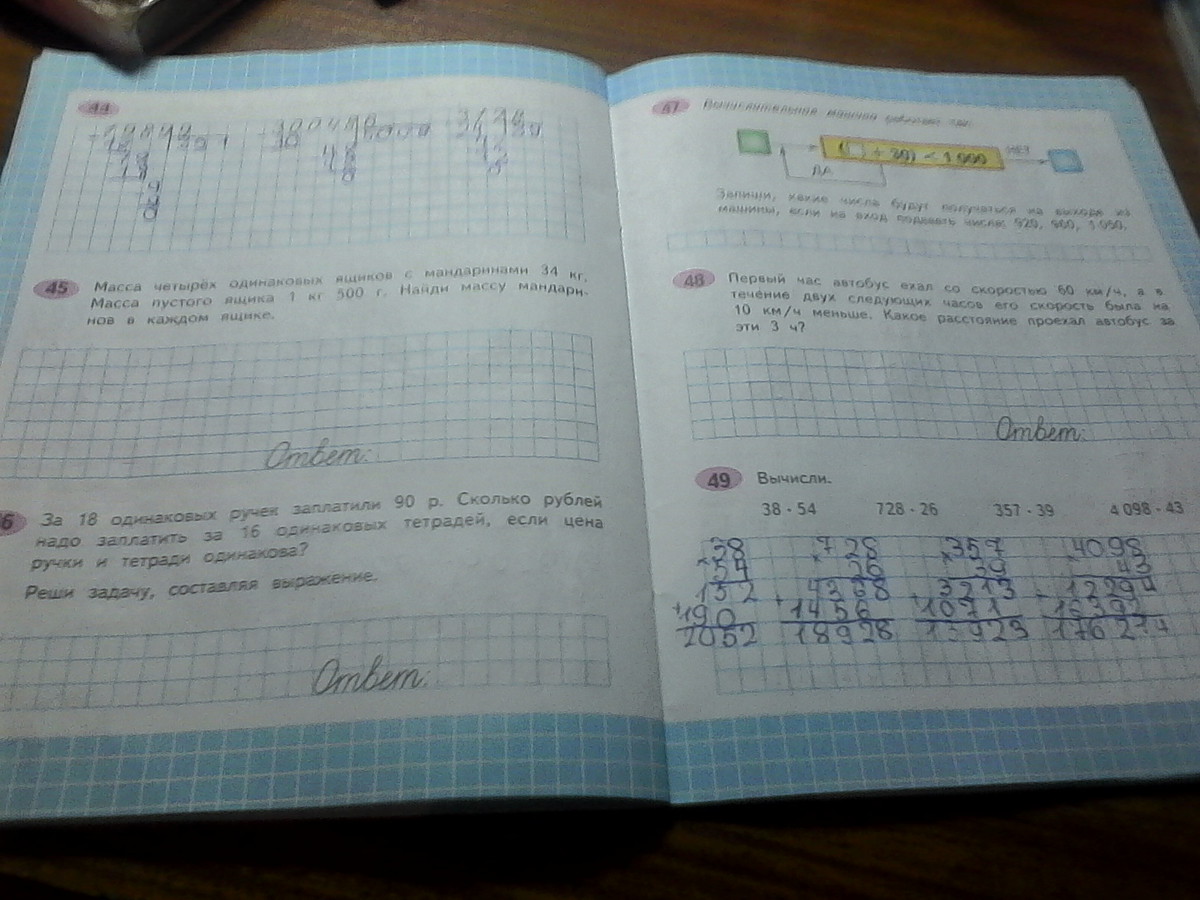 44
45
Масса четырёх одинаковых ящиков с мандаринами 34 кг.
Масса пустого ящика 1 кг 500 г. Найди массу мандари-
нов в каждом ящике.
Ответ:
6
За 18 одинаковых ручек заплатили 90 р. Сколько рублей
надо заплатить за 16 одинаковых тетрадей, если цена
ручки и тетради одинакова?
Реши задачу, составляя выражение.
Ответ:
47
Вычислительная машина работает так:
НЕТ
ДА
Запиши, какие числа будут получаться на выходе из
машины, если на вход подавать числа:
48
Первый час автобус ехал со скоростью 60 км/ч, а в
течение двух следующих часов его скорость была на
10 км/ч меньше. Какое расстояние проехал автобус за
эти 3 ч?
Ответ:
49 Вычисли.
38 · 54 728 · 26 357 · 39 4 098 · 43
×38 ×728 ×357 ×4098
54 26 39 43
152 4368 3213 12294
+190 +1456 +1071 +16392
2052 18928 13923